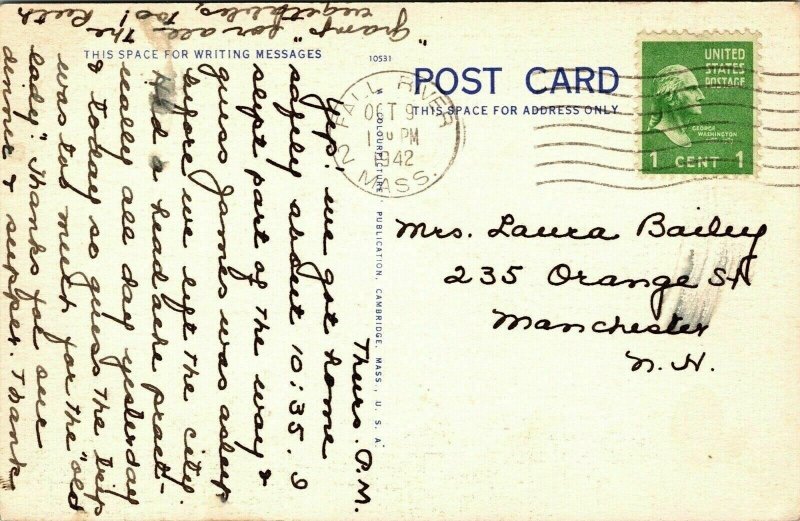 THIS SPACE FOR WRITING MESSAGES
10531
POST CARD
THIS SPACE FOR ADDRESS ONLY
FALL RIVER
OCT 9
1 PM
1942
2 MASS.
UNITED
STATES
POSTAGE
GEORGE
WASHINGTON
1 CENT 1
COLOURPICTURE PUBLICATION, CAMBRIDGE, MASS., U. S. A.
Mrs. Laura Bailey
235 Orange St
Manchester
N. H.
Thurs. P.M.
Yep! we got home
safely about 10:35. I
slept part of the way &
guess James was asleep
before we left the city.
Had a headache pract-
ically all day yesterday
& today so guess the trip
was too much for the "old
lady." Thanks for our
dinner & supper. Thank
"Gramp" for all the
vegetables, too! Ruth